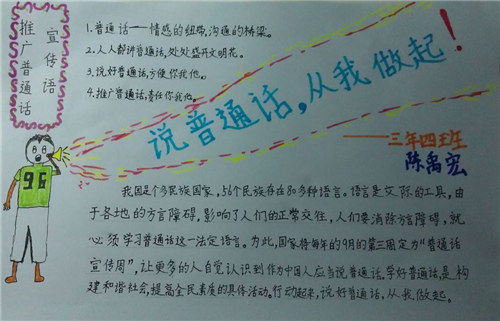 推广普通话
宣传语
1.普通话——情感的纽带,沟通的桥梁。
2.人人都讲普通话,处处盛开文明花。
3.说好普通话,方便你我他。
4.推广普通话,责任你我他。
说普通话,从我做起!
三年四班
陈禹宏
96
我国是个多民族国家,56个民族存在80多种语言。语言是交际的工具,由
于各地的方言障碍,影响了人们的正常交往,人们要消除方言障碍,就
必须学习普通话这一法定语言。为此,国家将每年的9月的第三周定为“普通话
宣传周”,让更多的人自觉认识到作为中国人应当说普通话。学好普通话,是构
建和谐社会,提高全民素质的具体活动。行动起来,说好普通话,从我做起。